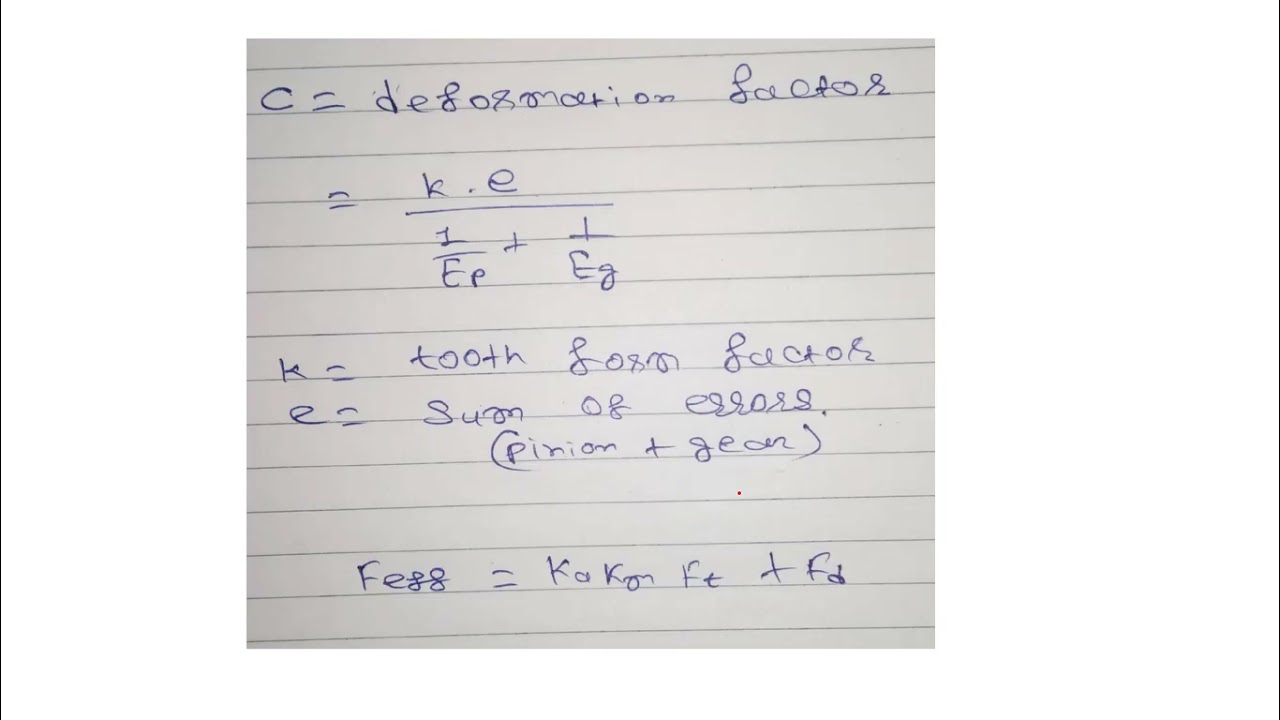 C = deformation factor
= k . e
1/Ep + 1/Eg
k = tooth form factor
e = Sum of errors.
(pinion + gear)
Feff = Ka Km Ft + Fd